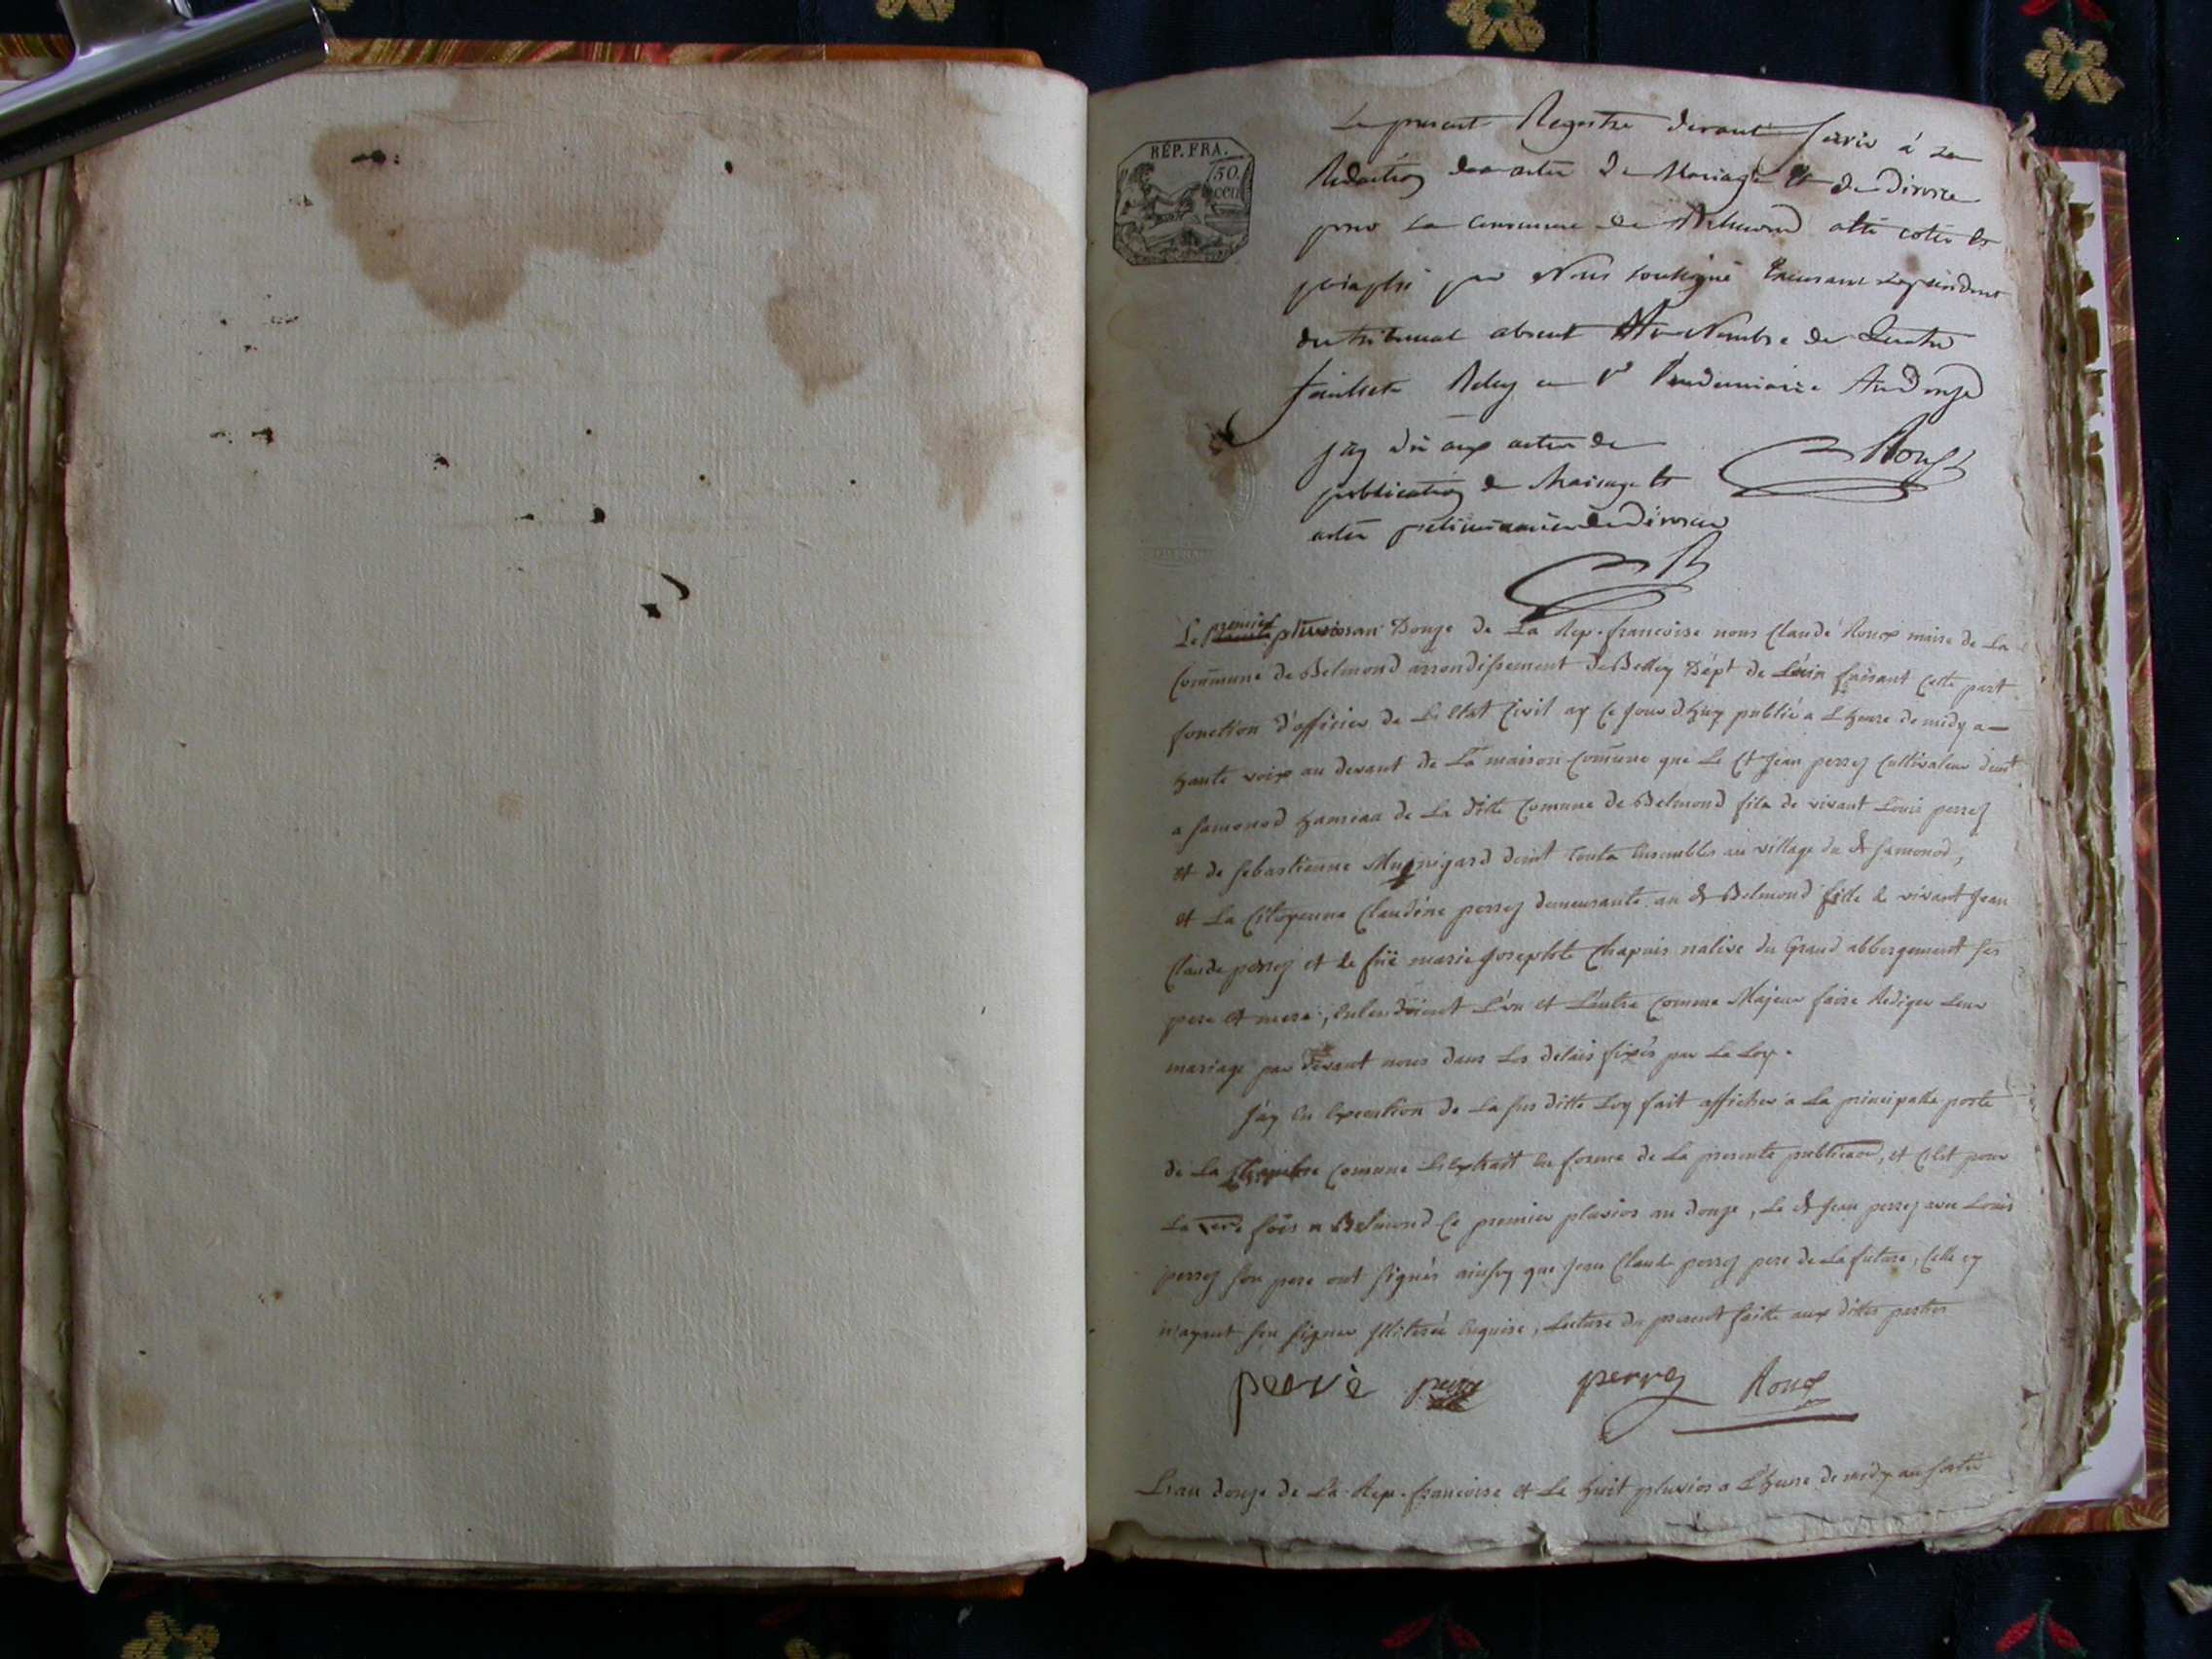 RÉP. FRA.
50. cen
Le present Registre devant servir à la
Rédaction des actes de Mariage et de Divorce
pour la commune de Belmond a été cotée et
paraphé par Nous soussigné President
du tribunal absent Au Nombre de Quatre
feuillets Belley ce 1er Vendemiaire An Douze
j'ay dit aux actes de
publication de Mariage et
actes preliminaires de Divorce
Roux
Le premier pluvios an Douze de La Rep. francoise nous Claude Roux maire de La
Commune de Belmond arrondissement de Belley Dépt de L'ain faisant cette part
fonction d'officier de L'Etat Civil ay ce jour d'huy publié a L'heure de midy a
haute voix au devant de La maison Comune que Le Ct Jean perrez Cultivateur demt
a samonod hamau de La ditte Comune de Belmond fils de vivant Louis perrez
et de sebastienne Mugnigard demt touts Ensembles au village du dt samonod,
et La Citoyenne Claudine perrez demeurante au dt Belmond fille de vivant Jean
Claude perrez et de füe marie Josephte Chapuis native du Grand abbergement ses
pere et mere, Entendoient L'un et L'autre Comme Majeur faire Rediger Leur
mariage par devant nous dans Les délais fixés par La Loy.
J'ay En Execution de La sus ditte Loy fait afficher a La principalle porte
de La Chambre Comune L'Extrait En forme de La presente publicaon, et C'est pour
La 1ere fois a Belmond Ce premier pluvios an douze, Le dt Jean perrez avec Louis
perrez son pere ont signés ainsy que Jean Claude perrez pere de La future, Celle cy
n'ayant sçu signer Illiterée Enquise, Lecture du present faitte aux dittes parties
perrè perre perrez Roux
L'an douze de La Rep. francoise et Le huit pluvios a L'heure de midy